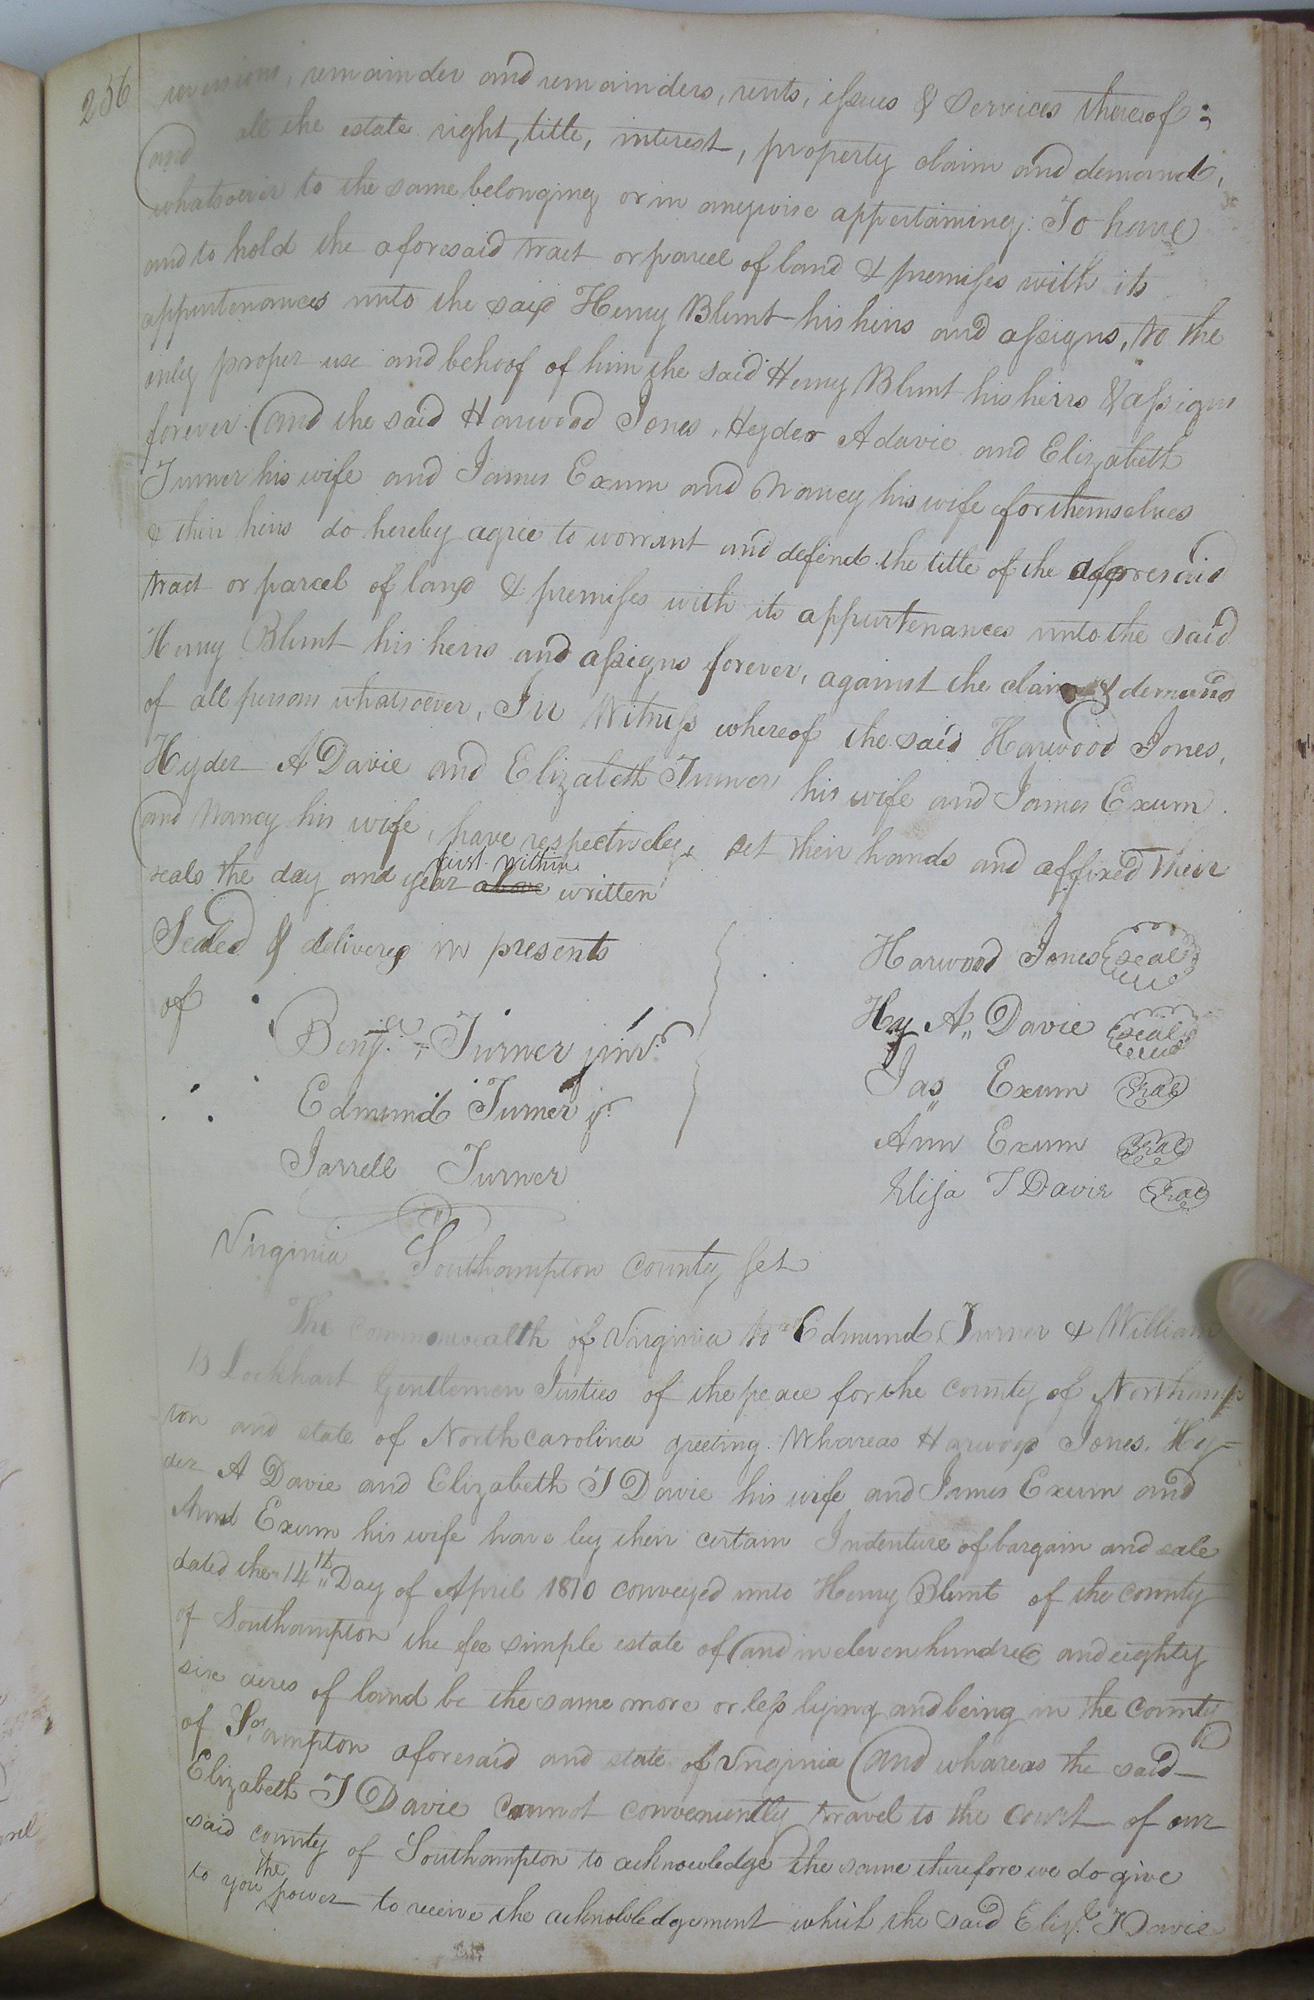 256
reversions, remainder and remainders, rents, issues & services thereof;
and all the estate right, title, interest, property claim and demand,
whatsoever to the same belonging or in anywise appertaining: To have
and to hold the aforesaid tract or parcel of land & premises with its
appurtenances unto the said Henry Blunt his heirs and assigns, to the
only proper use and behoof of him the said Henry Blunt his heirs & assigns
forever. And the said Harwood Jones, Hyder A davie and Elizabeth
Turner his wife and James Exum and Nancy his wife for themselves
& their heirs do hereby agree to worrant and defend the title of the aforesaid
tract or parcel of land & premises with its appurtenances unto the said
Henry Blunt his heirs and assigns forever, against the claim & demands
of all persons whatsoever, In Witness whereof the said Harwood Jones,
Hyder A Davie and Elizabeth Turner his wife and James Exum
and Nancy his wife, have respectively set their hands and affixed their
seals the day and year first within above written
Sealed & delivered in presents
of
Benja. Turner junr.
Edmund Turner jr.
Jarrell Turner
Harwood Jones seal
Hy A,, Davie seal
Jas Exum seal
Ann Exum seal
Eliza T Davie seal
Virginia Southampton county set
The commonwealth of Virginia to Edmund Turner & William
B Lockhart Gentlemen Justies of the peace for the county of Northamp
ton and state of North carolina greeting. Whareas Harwood Jones, Hy-
der A Davie and Elizabeth T Davie his wife and James Exum and
Ann Exum his wife have by their certain Indenture of bargain and sale
dated the 14th Day of April 1810 conveyed unto Henry Blunt of the county
of Southampton the fee simple estate of and in eleven hundred and eighty
six acres of land be the same more or less lying and being in the county
of So.ampton aforesaid and state of Virginia and whareas the said
Elizabeth T Davie cannot conveniently travel to the court of our
said county of Southampton to acknowledge the same therefore we do give
to you the power to receive the acknowledgement which the said Eliza. T Davie